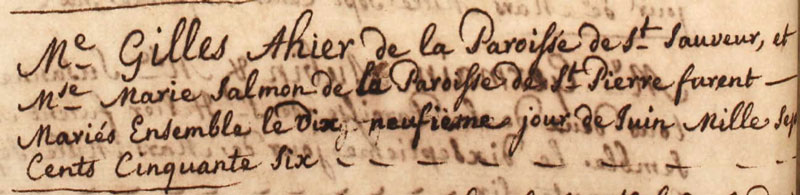 Me. Gilles Ahier de la Paroisse de St. Sauveur, et
Mse. Marie Salmon de la Paroisse de St. Pierre furent —
Mariés Ensemble le Dix neufième jour de Juin Mille Sept
Cents Cinquante Six — — — — — — — —